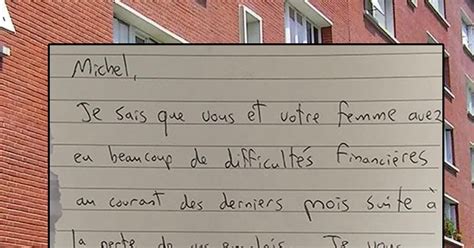 Michel,
Je sais que vous et votre femme avez
eu beaucoup de difficultés financières
au courant des derniers mois suite à
la perte de vos emplois. Je vous